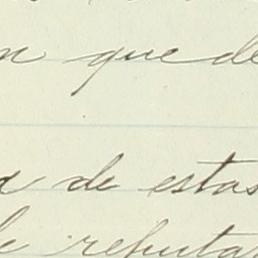 n que de
a de estas
le refuta